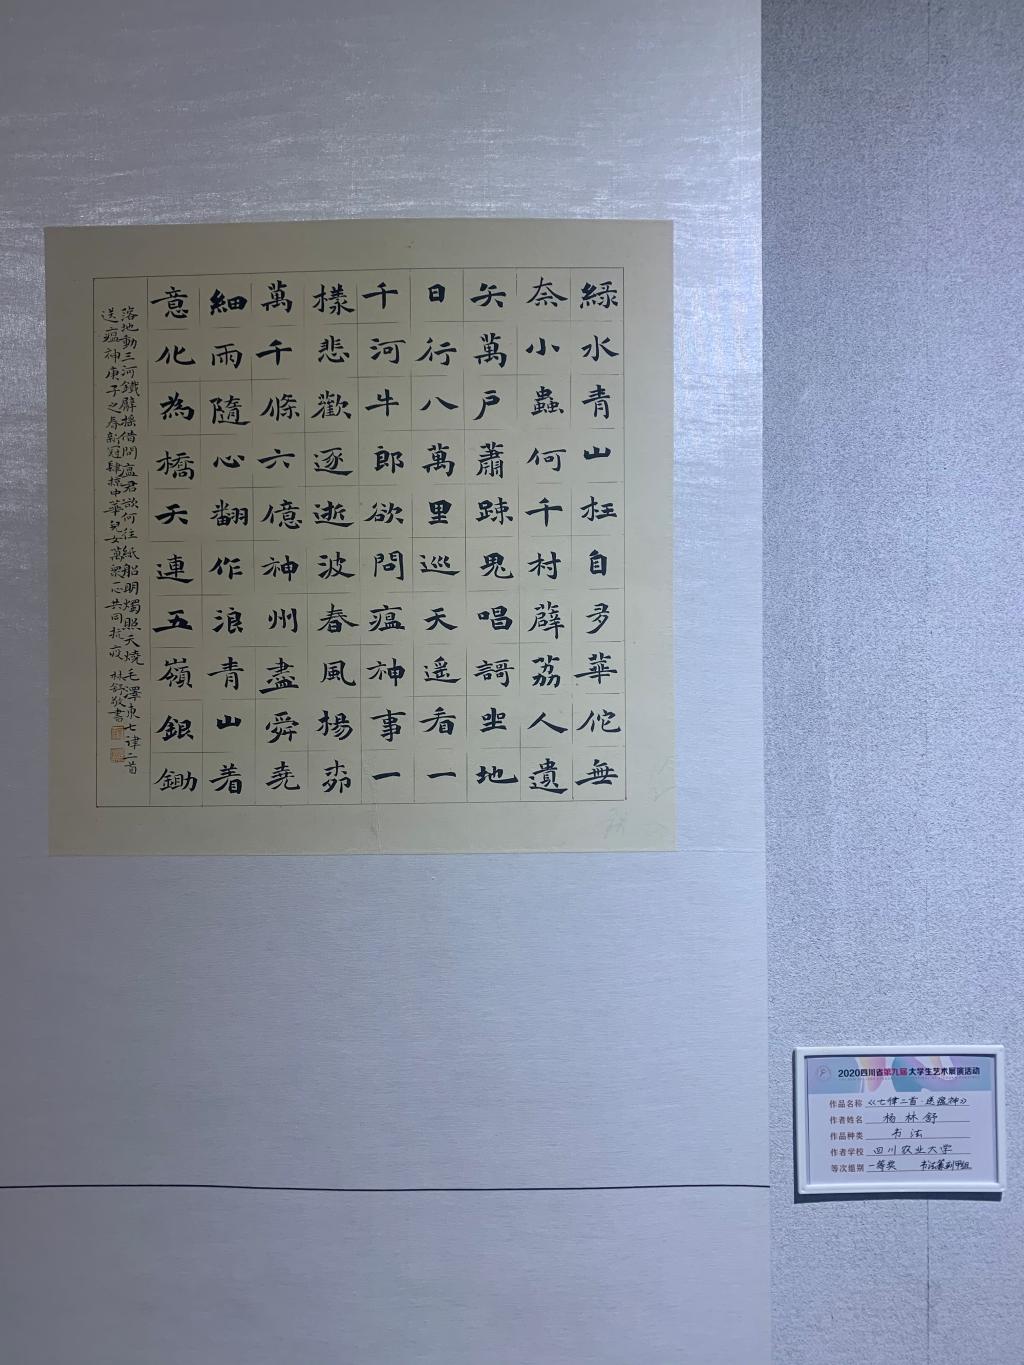 綠水青山枉自多華佗無
奈小蟲何千村薜荔人遺
矢萬戶蕭踈鬼唱謌坐地
日行八萬里巡天遥看一
千河牛郎欲問瘟神事一
樣悲歡逐逝波春風楊柳
萬千條六億神州盡舜堯
細雨隨心翻作浪青山着
意化為橋天連五嶺銀鋤
落地動三河鐵臂摇借問瘟君欲何往紙船明燭照天燒毛澤東七律二首
送瘟神庚子之春新冠肆掠中華兒女萬眾一心共同抗疫 林舒敬書
2020四川省第九届大学生艺术展演活动
作品名称 《七律二首·送瘟神》
作者姓名 杨林舒
作品种类 书法
作者学校 四川农业大学
等次组别 一等奖 书法篆刻甲组